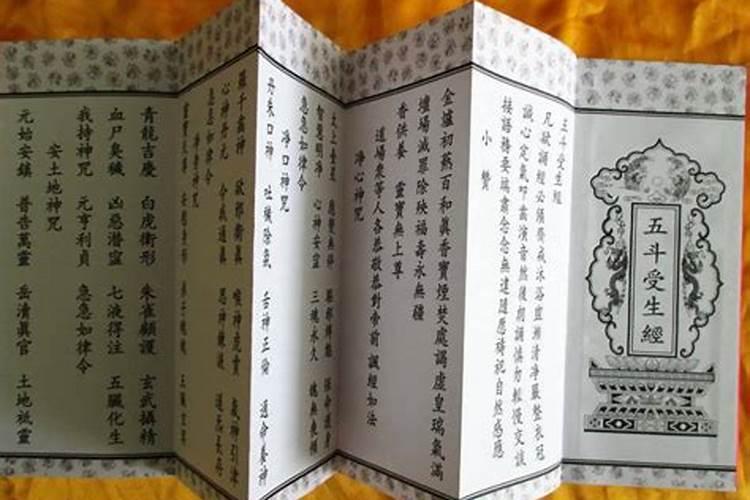 五斗受生經
五斗受生經
凡欲誦經必須齋戒沐浴盥漱清淨嚴整衣冠
誠心定氣叩齒演音然後朗誦慎勿輕慢交談
接語務要端肅念念無違隨應禱祀自然感應
小贊
金爐初爇百和真香寶煙焚處謁虛皇瑞氣滿
壇場滅罪除殃福壽永無疆
香供養 靈寶無上尊
道場眾等人各恭敬恭對帝前 誦經如法
淨心神咒
太上台星 應變無停 驅邪縛魅 保命護身
智慧明淨 心神安寧 三魂永久 魄無喪傾
急急如律令
淨口神咒
丹朱口神 吐穢除氛 舌神正倫 通命養神
羅千齒神 卻邪衛真 喉神虎賁 氣神引津
心神丹元 令我通真 思神鍊液 道炁長存
急急如律令
淨身神咒
靈寶天尊 安慰身形 弟子魂魄 五臟玄冥
青龍吉慶 白虎衛形 朱雀顧護 玄武攝精
血尸臭穢 凶惡潛寧 七液得注 五臟化生
我持神咒 元亨利貞 急急如律令
安土地神咒
元始安鎮 普告萬靈 岳瀆真官 土地祗靈